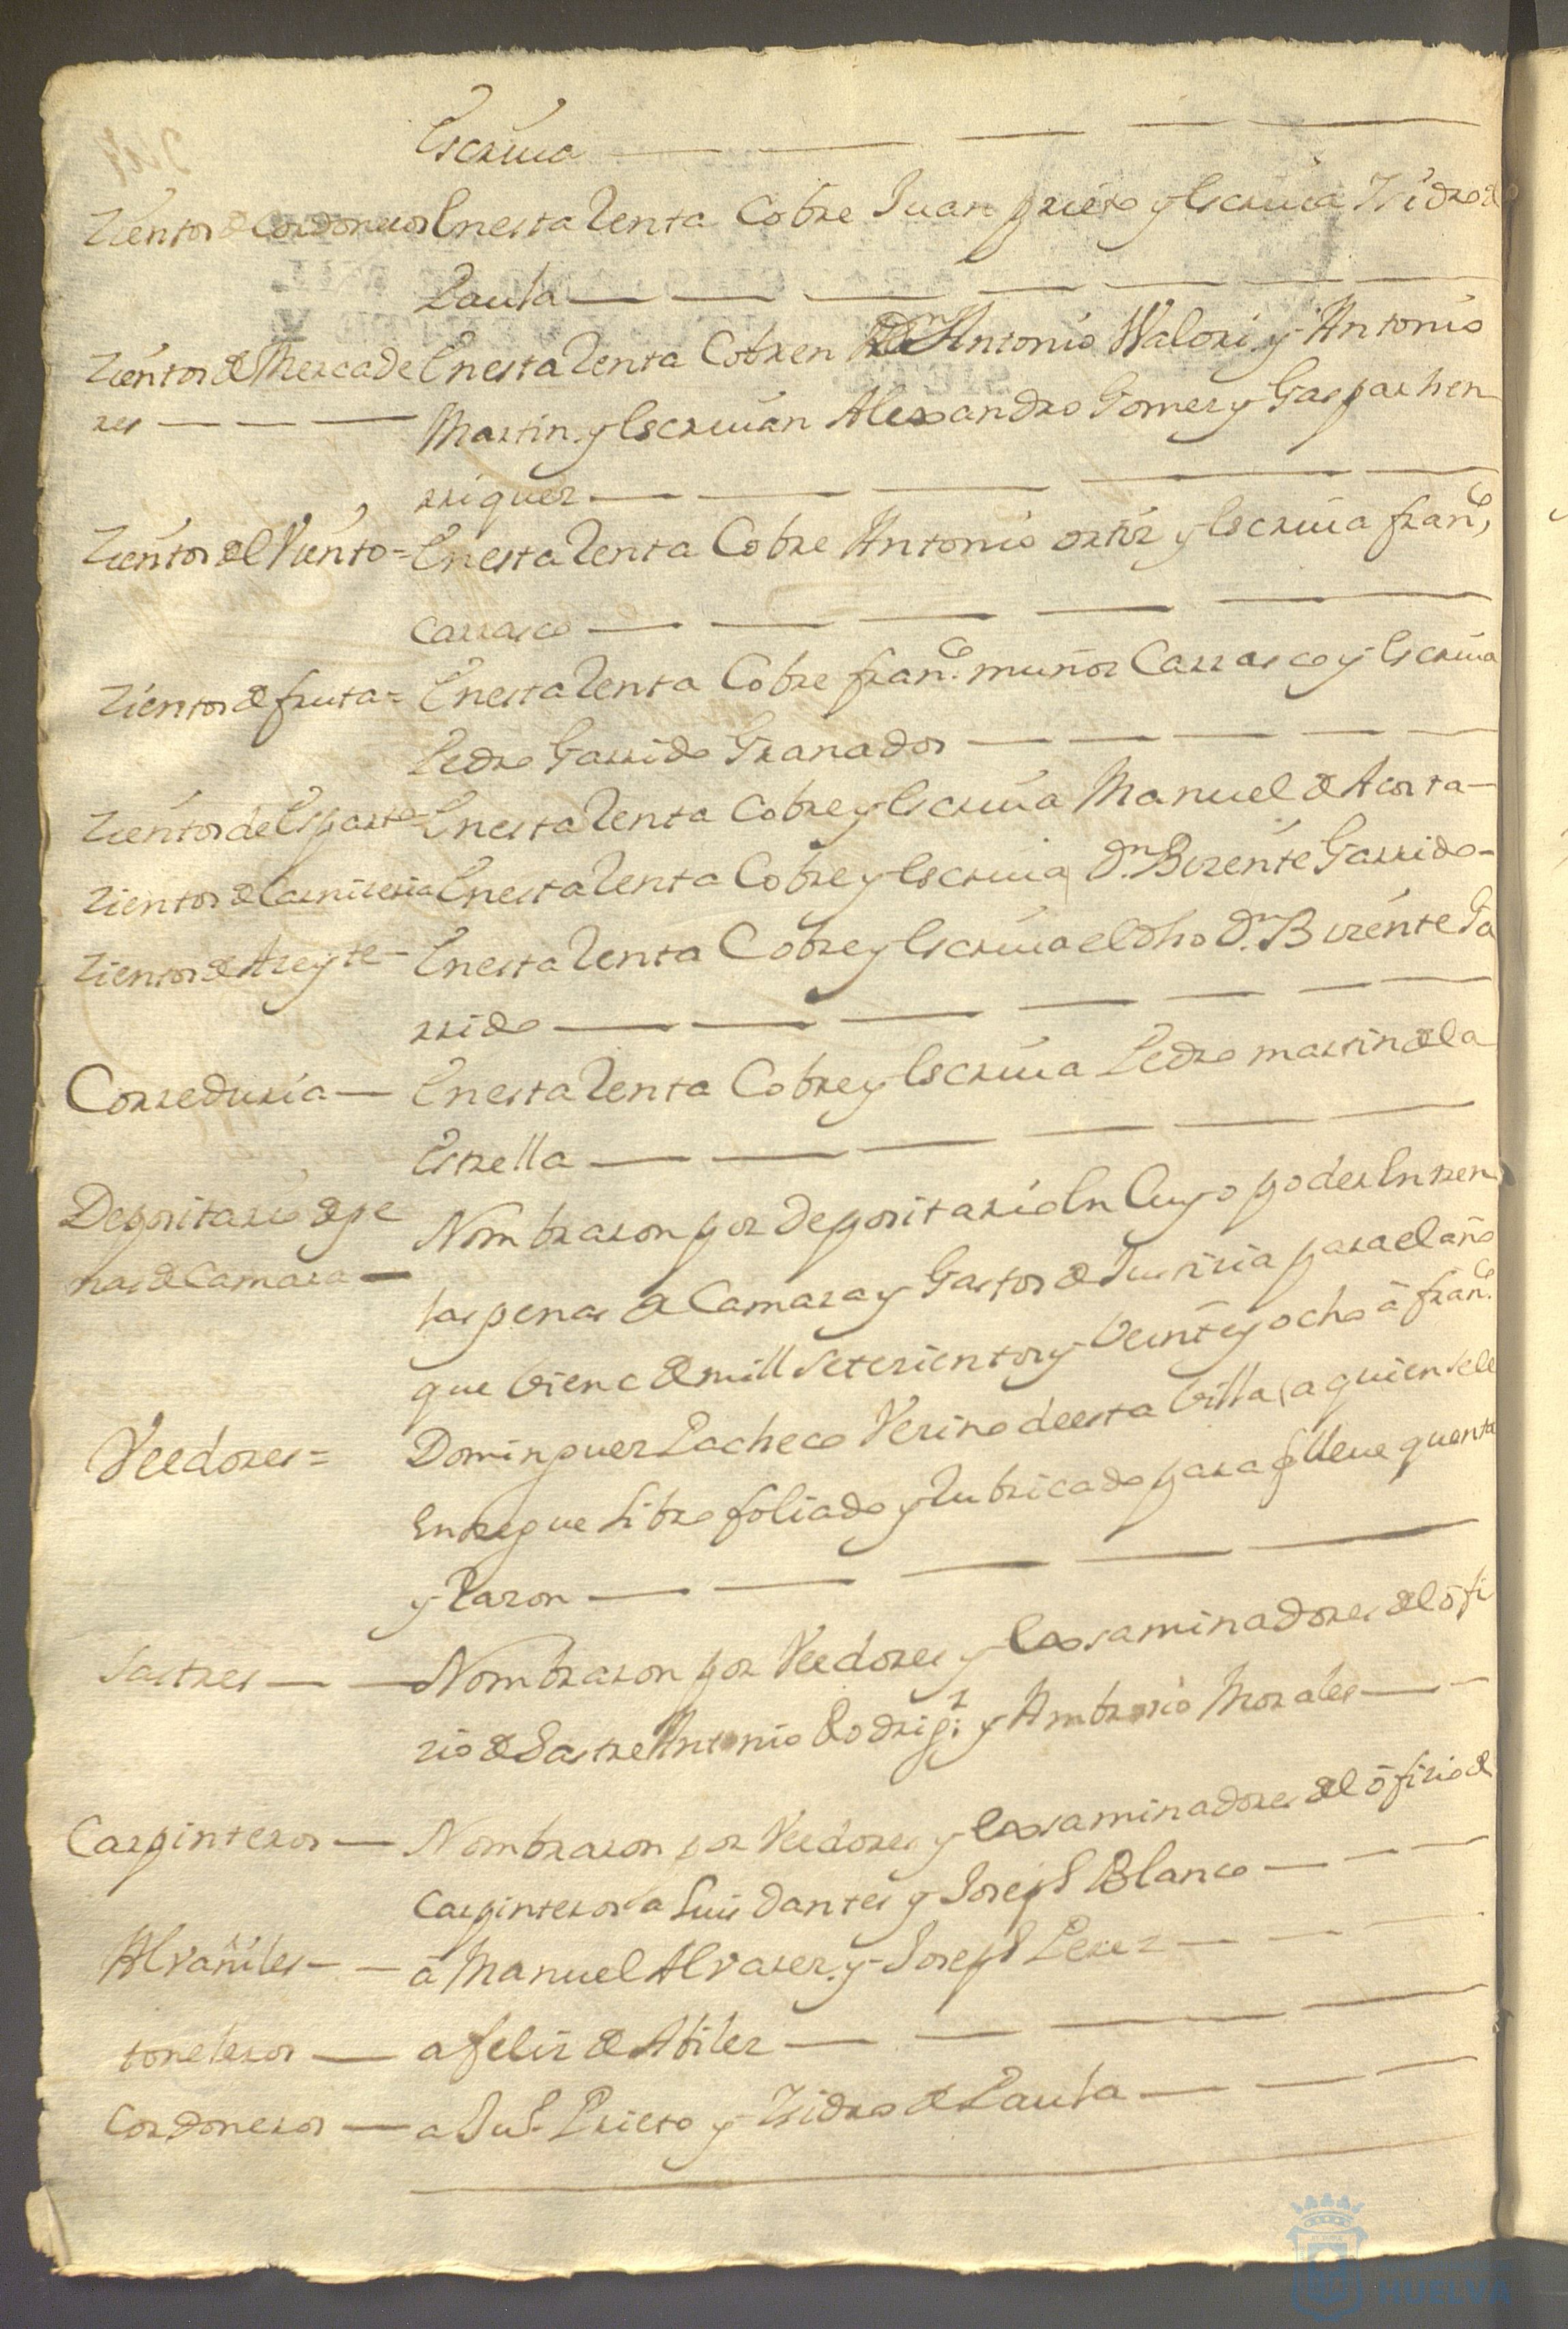 Escriua
Zientos de Cordoneros En esta Renta Cobre Juan prieto y Escriua Ysidro de
Paula
Zientos de Mercade En esta Renta Cobren Dn Antonio Walori y Antonio
res Martin y Escriuan Alexandro Gomez y Gaspar hen
rriquez
Zientos del Viento = En esta Renta Cobre Antonio ortiz y Escriua franco
Carrasco
Zientos de fruta = En esta Renta Cobre franco muñoz Carrasco y Escriua
Pedro Garrido Granados
Zientos de Esparto En esta Renta Cobre y Escriua Manuel de Acosta
Zientos de Carniseria En esta Renta Cobre y Escriuia Dn Bizente Garrido
Zientos de Azeyte En esta Renta Cobre y Escriua el dho Dn Bizente Ga
rrido
Correduria En esta Renta Cobre y Escriua Pedro martin de la
Estrella
Depositario de pe Nombraron por depositario En Cuyo poder Entren
nas de Camara las penas de Camara y Gastos de Justizia para el año
que biene de mill Setezientos y beinte y ocho â franco
Veedores = Dominguez Pacheco Vezino de esta billa (a quien se le
Entregue Libro foliado y Rubricado para q lleue quenta
y Razon
Sastres Nombraron por Veedores y Exsaminadores del ofi
zio de Sastre Antonio Rodrigz y Ambrosio Morales
Carpinteros Nombraron por Veedores y Exsaminadores del ofizio de
Carpinteros a Luis dantes y Joseph Blanco
Alvañiles â Manuel Alvarez y Joseph Perez
toneleros a feliz de Abilez
Cordoneros a Jun Prieto y Ysidro de Paula
HUELVA